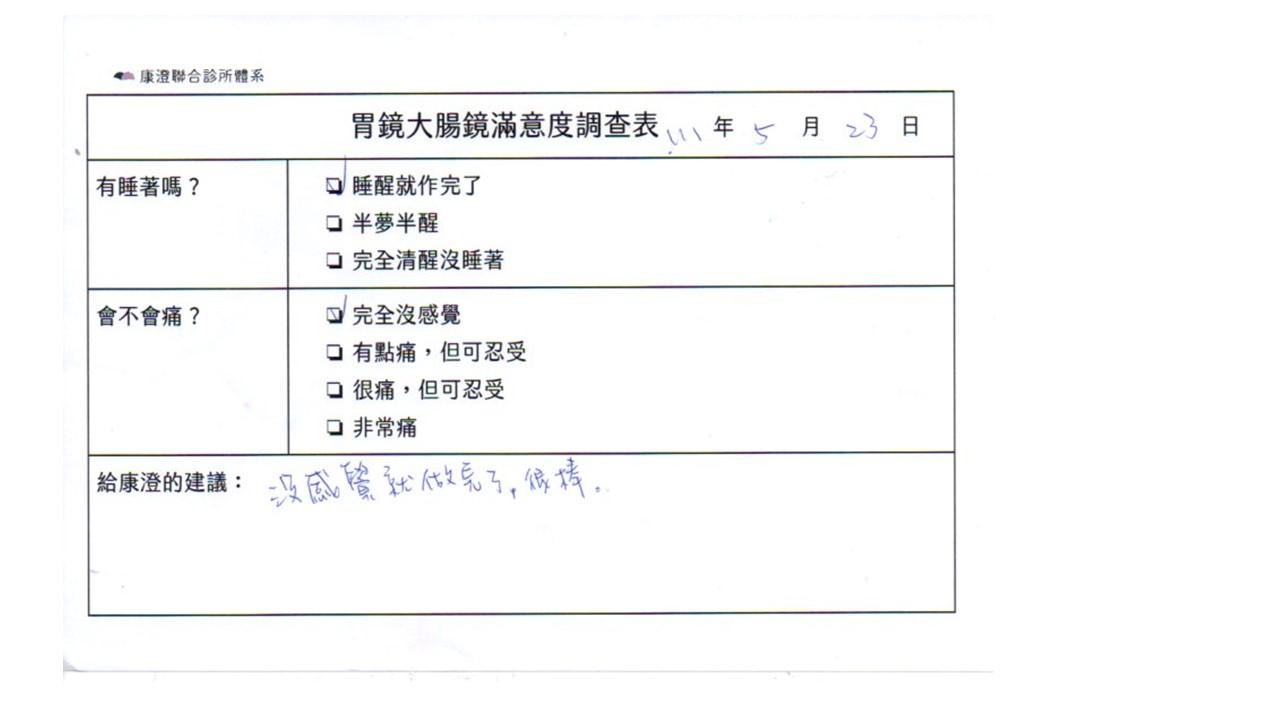 康澄聯合診所體系
胃鏡大腸鏡滿意度調查表 111 年 5 月 23 日
有睡著嗎？
☑ 睡醒就作完了
❑ 半夢半醒
❑ 完全清醒沒睡著
會不會痛？
☑ 完全沒感覺
❑ 有點痛，但可忍受
❑ 很痛，但可忍受
❑ 非常痛
給康澄的建議： 沒感覺就做完了，很棒。